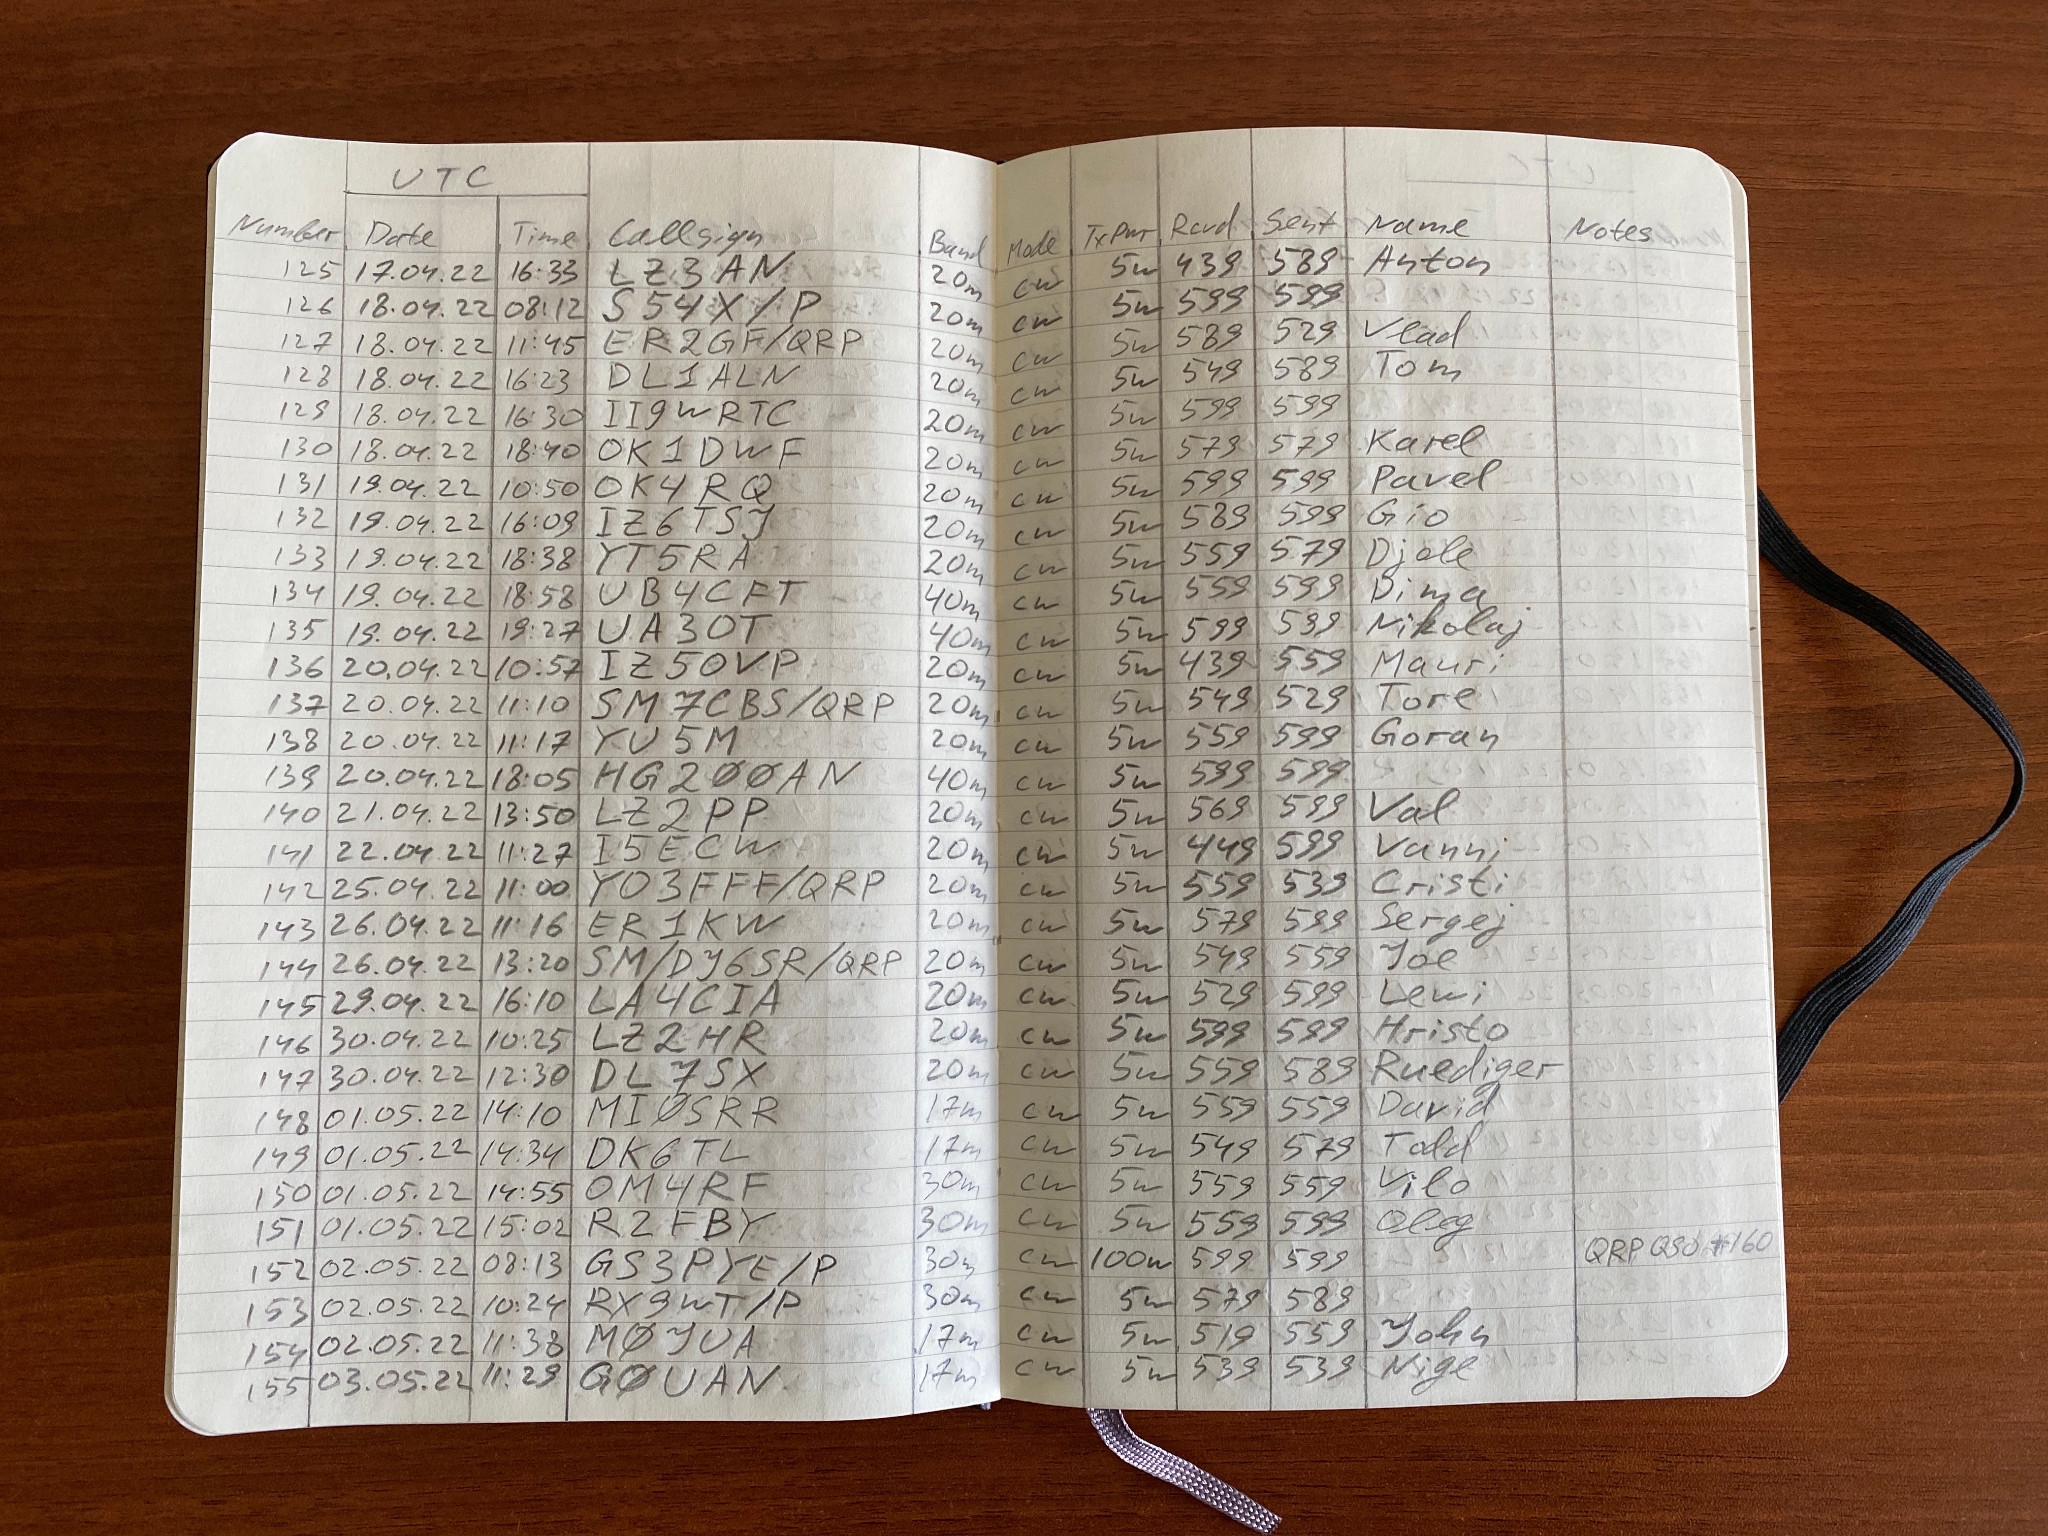 UTC
Number Date Time Callsign Band Mode TxPwr Rcvd Sent Name Notes
125 17.04.22 16:33 LZ3AN 20m cw 5w 439 589 Anton
126 18.04.22 08:12 S54X/P 20m cw 5w 599 599
127 18.04.22 11:45 ER2GF/QRP 20m cw 5w 589 529 Vlad
128 18.04.22 16:23 DL1ALN 20m cw 5w 549 589 Tom
129 18.04.22 16:30 II9WRTC 20m cw 5w 599 599
130 18.04.22 18:40 OK1DWF 20m cw 5w 579 579 Karel
131 19.04.22 10:50 OK4RQ 20m cw 5w 599 599 Pavel
132 19.04.22 16:09 IZ6TSJ 20m cw 5w 589 599 Gio
133 19.04.22 18:38 YT5RA 20m cw 5w 559 579 Djole
134 19.04.22 18:58 UB4CFT 40m cw 5w 559 599 Dima
135 19.04.22 19:27 UA3OT 40m cw 5w 599 599 Nikolaj
136 20.04.22 10:57 IZ5OVP 20m cw 5w 439 559 Mauri
137 20.04.22 11:10 SM7CBS/QRP 20m cw 5w 549 529 Tore
138 20.04.22 11:17 YU5M 20m cw 5w 559 599 Goran
139 20.04.22 18:05 HG2ØØAN 40m cw 5w 599 599
140 21.04.22 13:50 LZ2PP 20m cw 5w 569 599 Val
141 22.04.22 11:27 I5ECW 20m cw 5w 449 599 Vanni
142 25.04.22 11:00 YO3FFF/QRP 20m cw 5w 559 539 Cristi
143 26.04.22 11:16 ER1KW 20m cw 5w 579 599 Sergej
144 26.04.22 13:20 SM/DJ6SR/QRP 20m cw 5w 549 559 Joe
145 29.04.22 16:10 LA4CIA 20m cw 5w 529 599 Lewi
146 30.04.22 10:25 LZ2HR 20m cw 5w 599 599 Hristo
147 30.04.22 12:30 DL7SX 20m cw 5w 559 589 Ruediger
148 01.05.22 14:10 MIØSRR 17m cw 5w 559 559 David
149 01.05.22 14:34 DK6TL 17m cw 5w 549 579 Todd
150 01.05.22 14:55 OM4RF 30m cw 5w 559 559 Vilo
151 01.05.22 15:02 R2FBY 30m cw 5w 559 599 Oleg
152 02.05.22 08:13 GS3PYE/P 30m cw 100w 599 599 QRP QSO #160
153 02.05.22 10:24 RX9WT/P 30m cw 5w 579 589
154 02.05.22 11:38 MØJUA 17m cw 5w 519 559 John
155 03.05.22 11:29 GØUAN 17m cw 5w 539 539 Nige